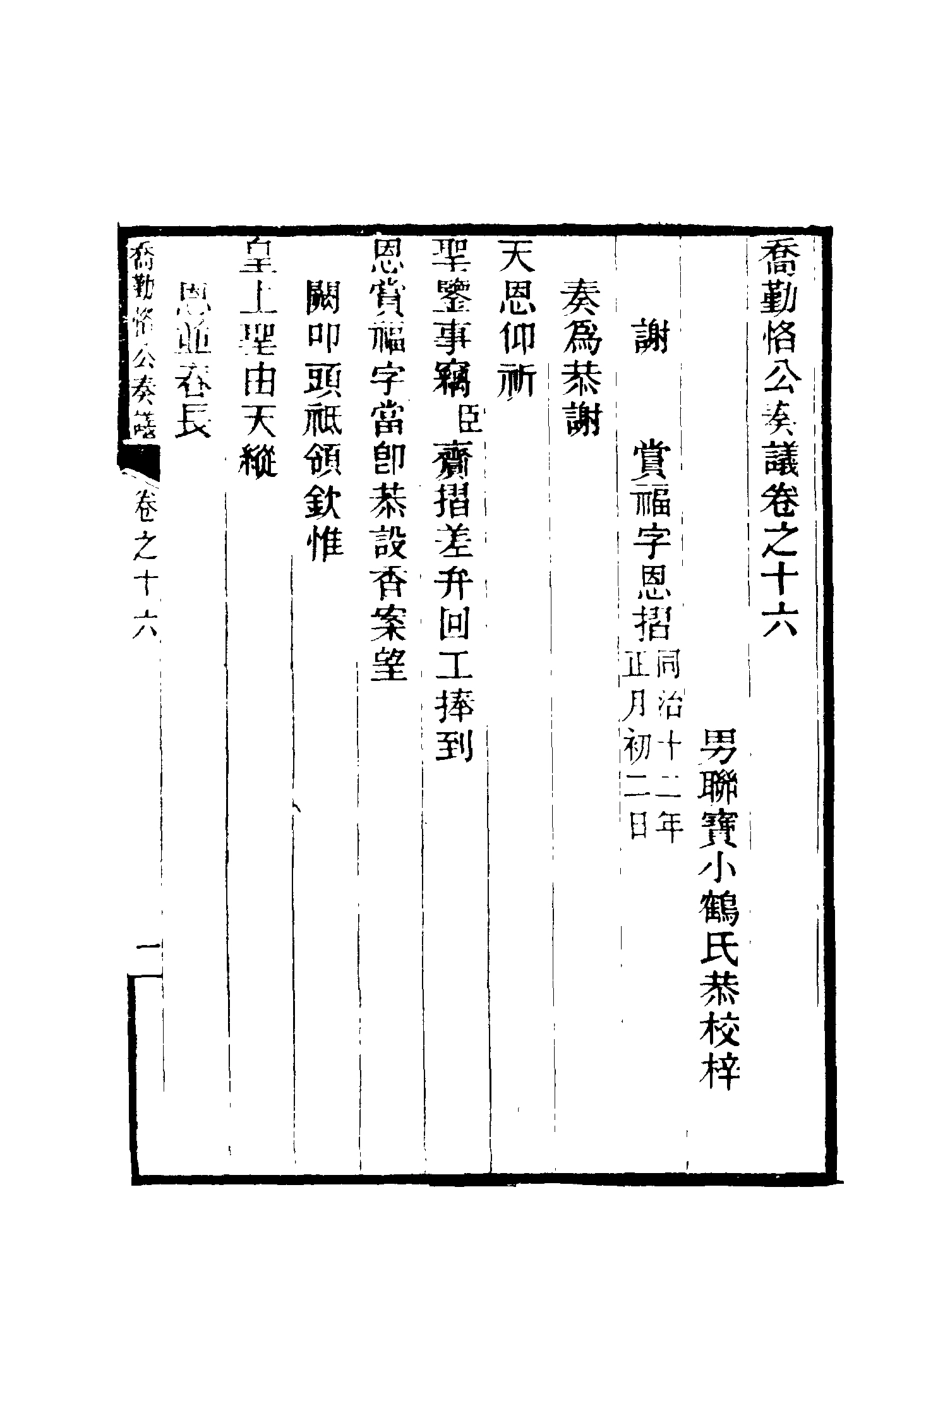 喬勤恪公奏議卷之十六
男聯寶小鶴氏恭校梓
謝　賞福字恩摺同治十二年正月初二日
奏爲恭謝
天恩仰祈
聖鑒事竊臣齎摺差弁回工捧到
恩賞福字當卽恭設香案望
闕叩頭祗領欽惟
皇上聖由天縱
恩並春長
喬勤恪公奏議　卷之十六　一